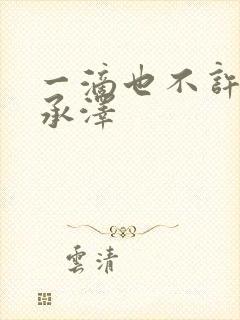 一滴也不許
承澤
雲清